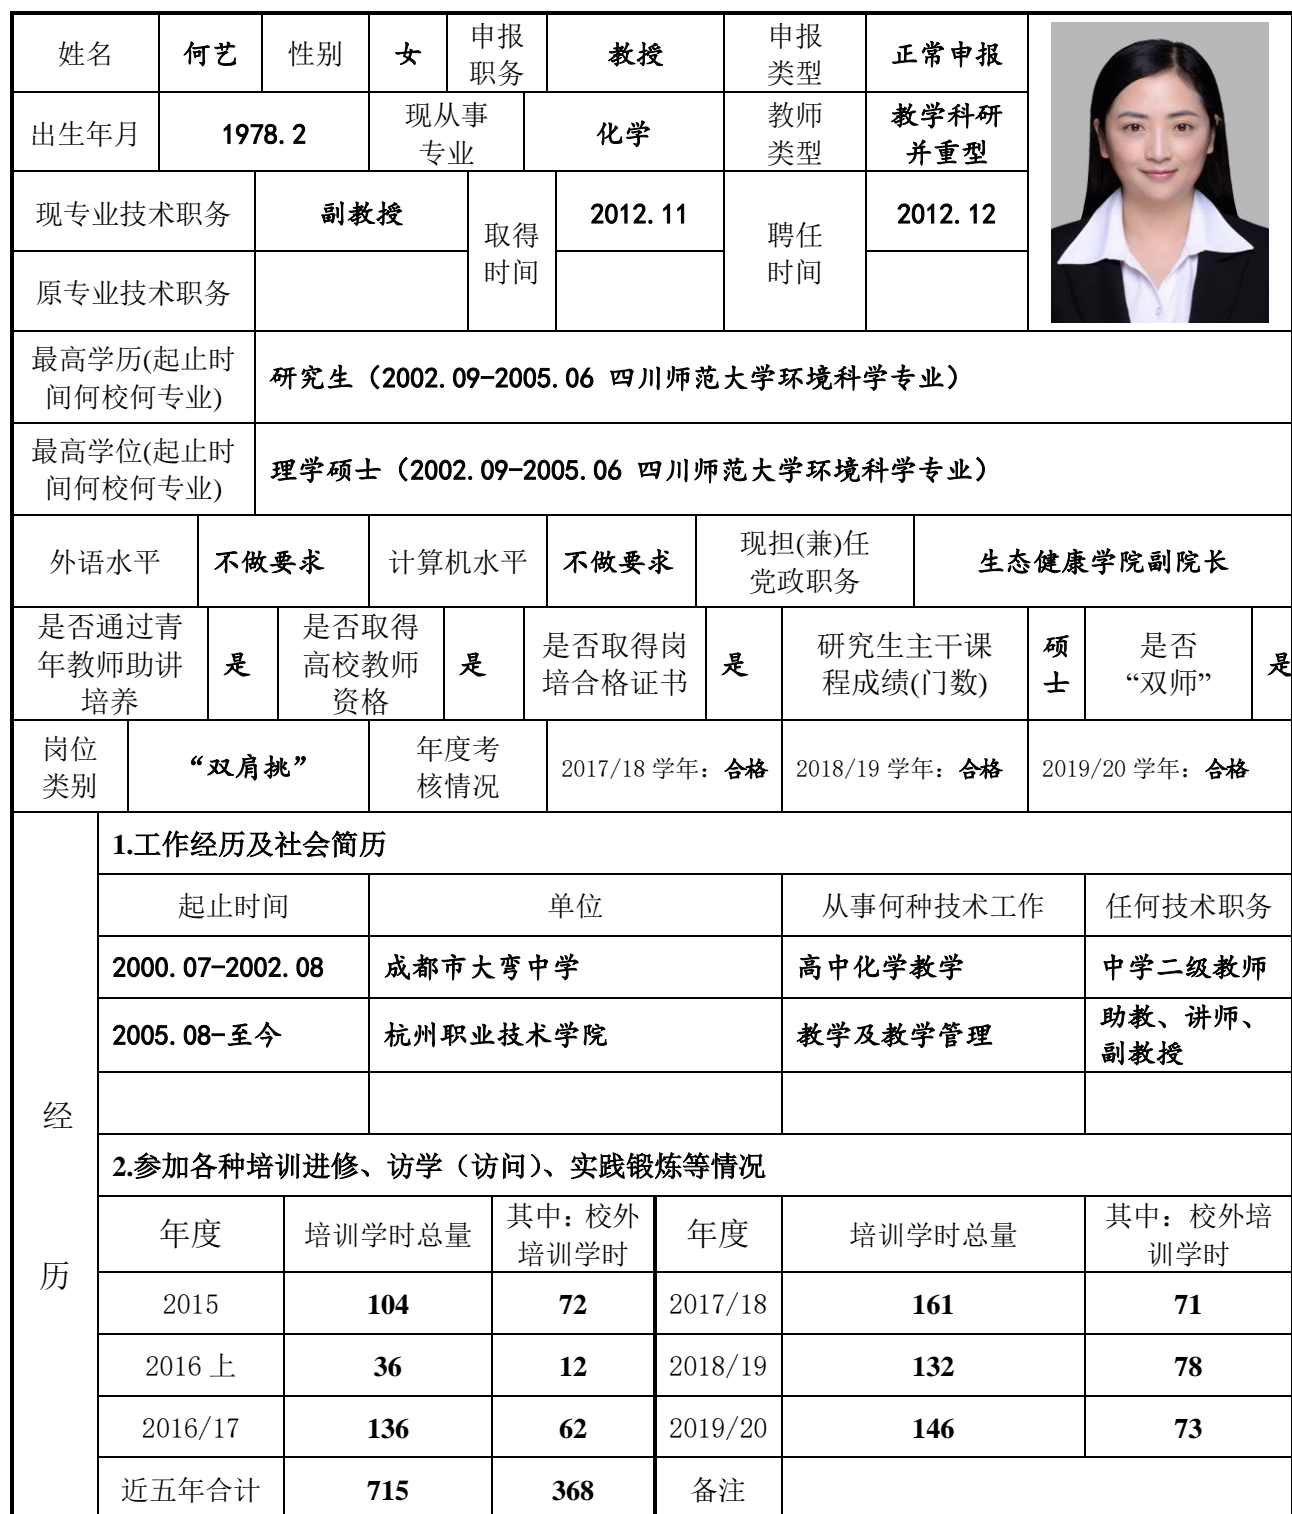 姓名 何艺 性别 女 申报职务 教授 申报类型 正常申报
出生年月 1978.2 现从事专业 化学 教师类型 教学科研并重型
现专业技术职务 副教授 取得时间 2012.11 聘任时间 2012.12
原专业技术职务
最高学历(起止时间何校何专业) 研究生（2002.09-2005.06 四川师范大学环境科学专业）
最高学位(起止时间何校何专业) 理学硕士（2002.09-2005.06 四川师范大学环境科学专业）
外语水平 不做要求 计算机水平 不做要求 现担(兼)任党政职务 生态健康学院副院长
是否通过青年教师助讲培养 是 是否取得高校教师资格 是 是否取得岗培合格证书 是 研究生主干课程成绩(门数) 硕士 是否“双师” 是
岗位类别 “双肩挑” 年度考核情况 2017/18 学年：合格 2018/19 学年：合格 2019/20 学年：合格
经历
1.工作经历及社会简历
起止时间 单位 从事何种技术工作 任何技术职务
2000.07-2002.08 成都市大弯中学 高中化学教学 中学二级教师
2005.08-至今 杭州职业技术学院 教学及教学管理 助教、讲师、副教授
2.参加各种培训进修、访学（访问）、实践锻炼等情况
年度 培训学时总量 其中：校外培训学时 年度 培训学时总量 其中：校外培训学时
2015 104 72 2017/18 161 71
2016 上 36 12 2018/19 132 78
2016/17 136 62 2019/20 146 73
近五年合计 715 368 备注